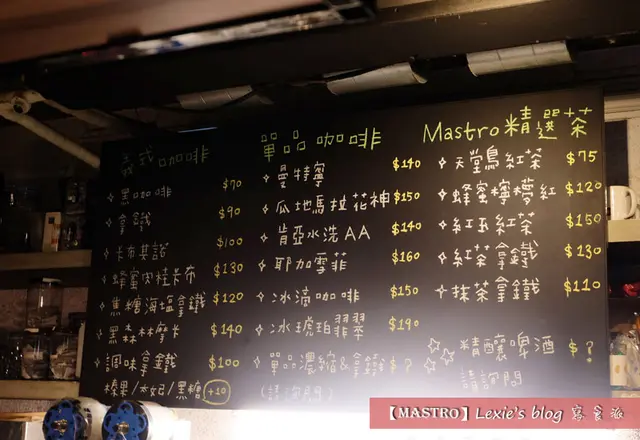 義式咖啡
黑咖啡 $70
拿鐵 $90
卡布其諾 $100
蜂蜜肉桂卡布 $130
焦糖海塩拿鐵 $120
黑森林摩卡 $140
調味拿鐵 $100
榛果/太妃/黑糖 +10
單品咖啡
曼特寧 $140
瓜地馬拉花神 $150
肯亞水洗AA $140
耶加雪菲 $160
冰滴咖啡 $150
冰琥珀翡翠 $190
單品濃縮&拿鐵 $?
(請詢問)
Mastro精選茶
天堂鳥紅茶 $75
蜂蜜檸檬紅 $120
紅玉紅茶 $150
紅茶拿鐵 $130
抹茶拿鐵 $110
精釀啤酒 $?
請詢問
【MASTRO】Lexie's blog 寫食派